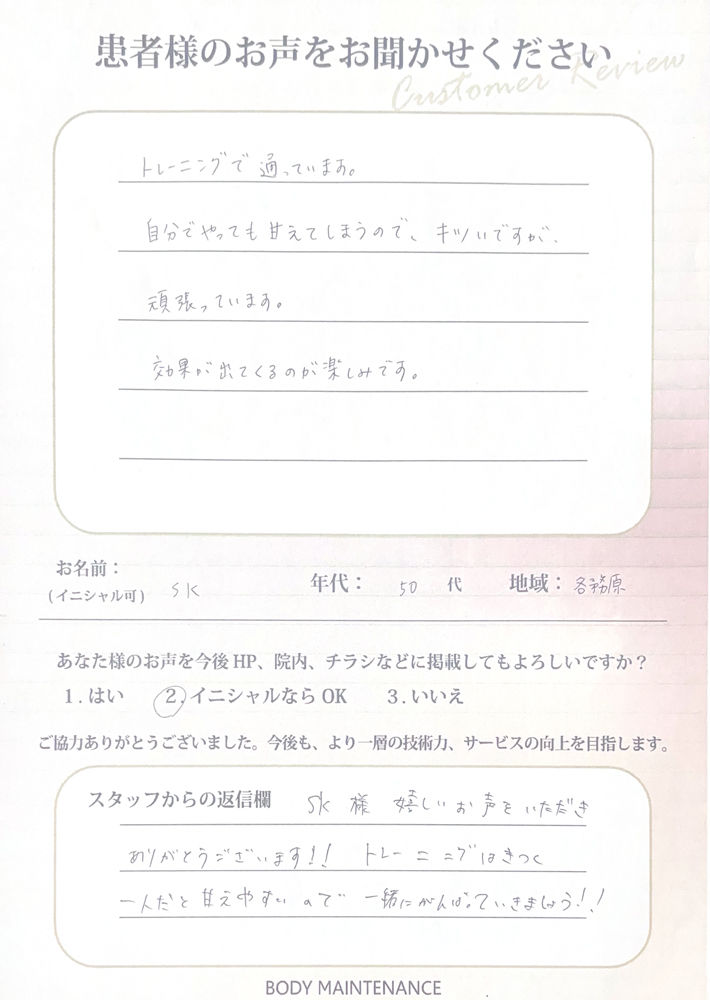 患者様のお声をお聞かせください
Customer Review
トレーニングで通っています。
自分でやっても甘えてしまうので、キツいですが、
頑張っています。
効果が出てくるのが楽しみです。
お名前：
(イニシャル可) SK 年代： 50 代 地域：各務原
あなた様のお声を今後HP、院内、チラシなどに掲載してもよろしいですか？
1.はい 2.イニシャルならOK 3.いいえ
ご協力ありがとうございました。今後も、より一層の技術力、サービスの向上を目指します。
スタッフからの返信欄 SK様 嬉しいお声をいただき
ありがとうございます!! トレーニングはきつく
一人だと甘えやすいので 一緒にがんばっていきましょう!!
BODY MAINTENANCE